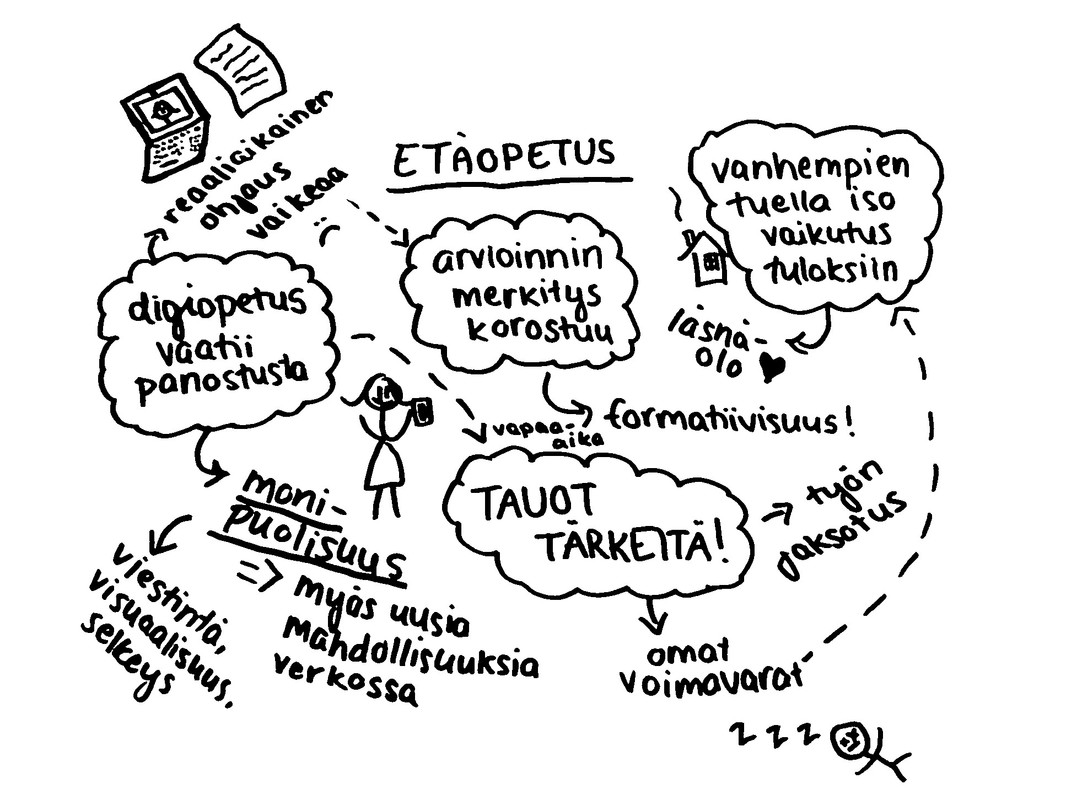 ETÄOPETUS
reaaliaikainen
ohjaus
vaikeaa
digiopetus
vaatii
panostusta
moni-
puolisuus
viestintä,
visuaalisuus,
selkeys
=> myös uusia
mahdollisuuksia
verkossa
arvioinnin
merkitys
korostuu
formatiivisuus!
vanhempien
tuella iso
vaikutus
tuloksiin
läsnä-
olo
vapaa-
aika
TAUOT
TÄRKEITÄ!
työn
jaksotus
omat
voimavarat
z z z